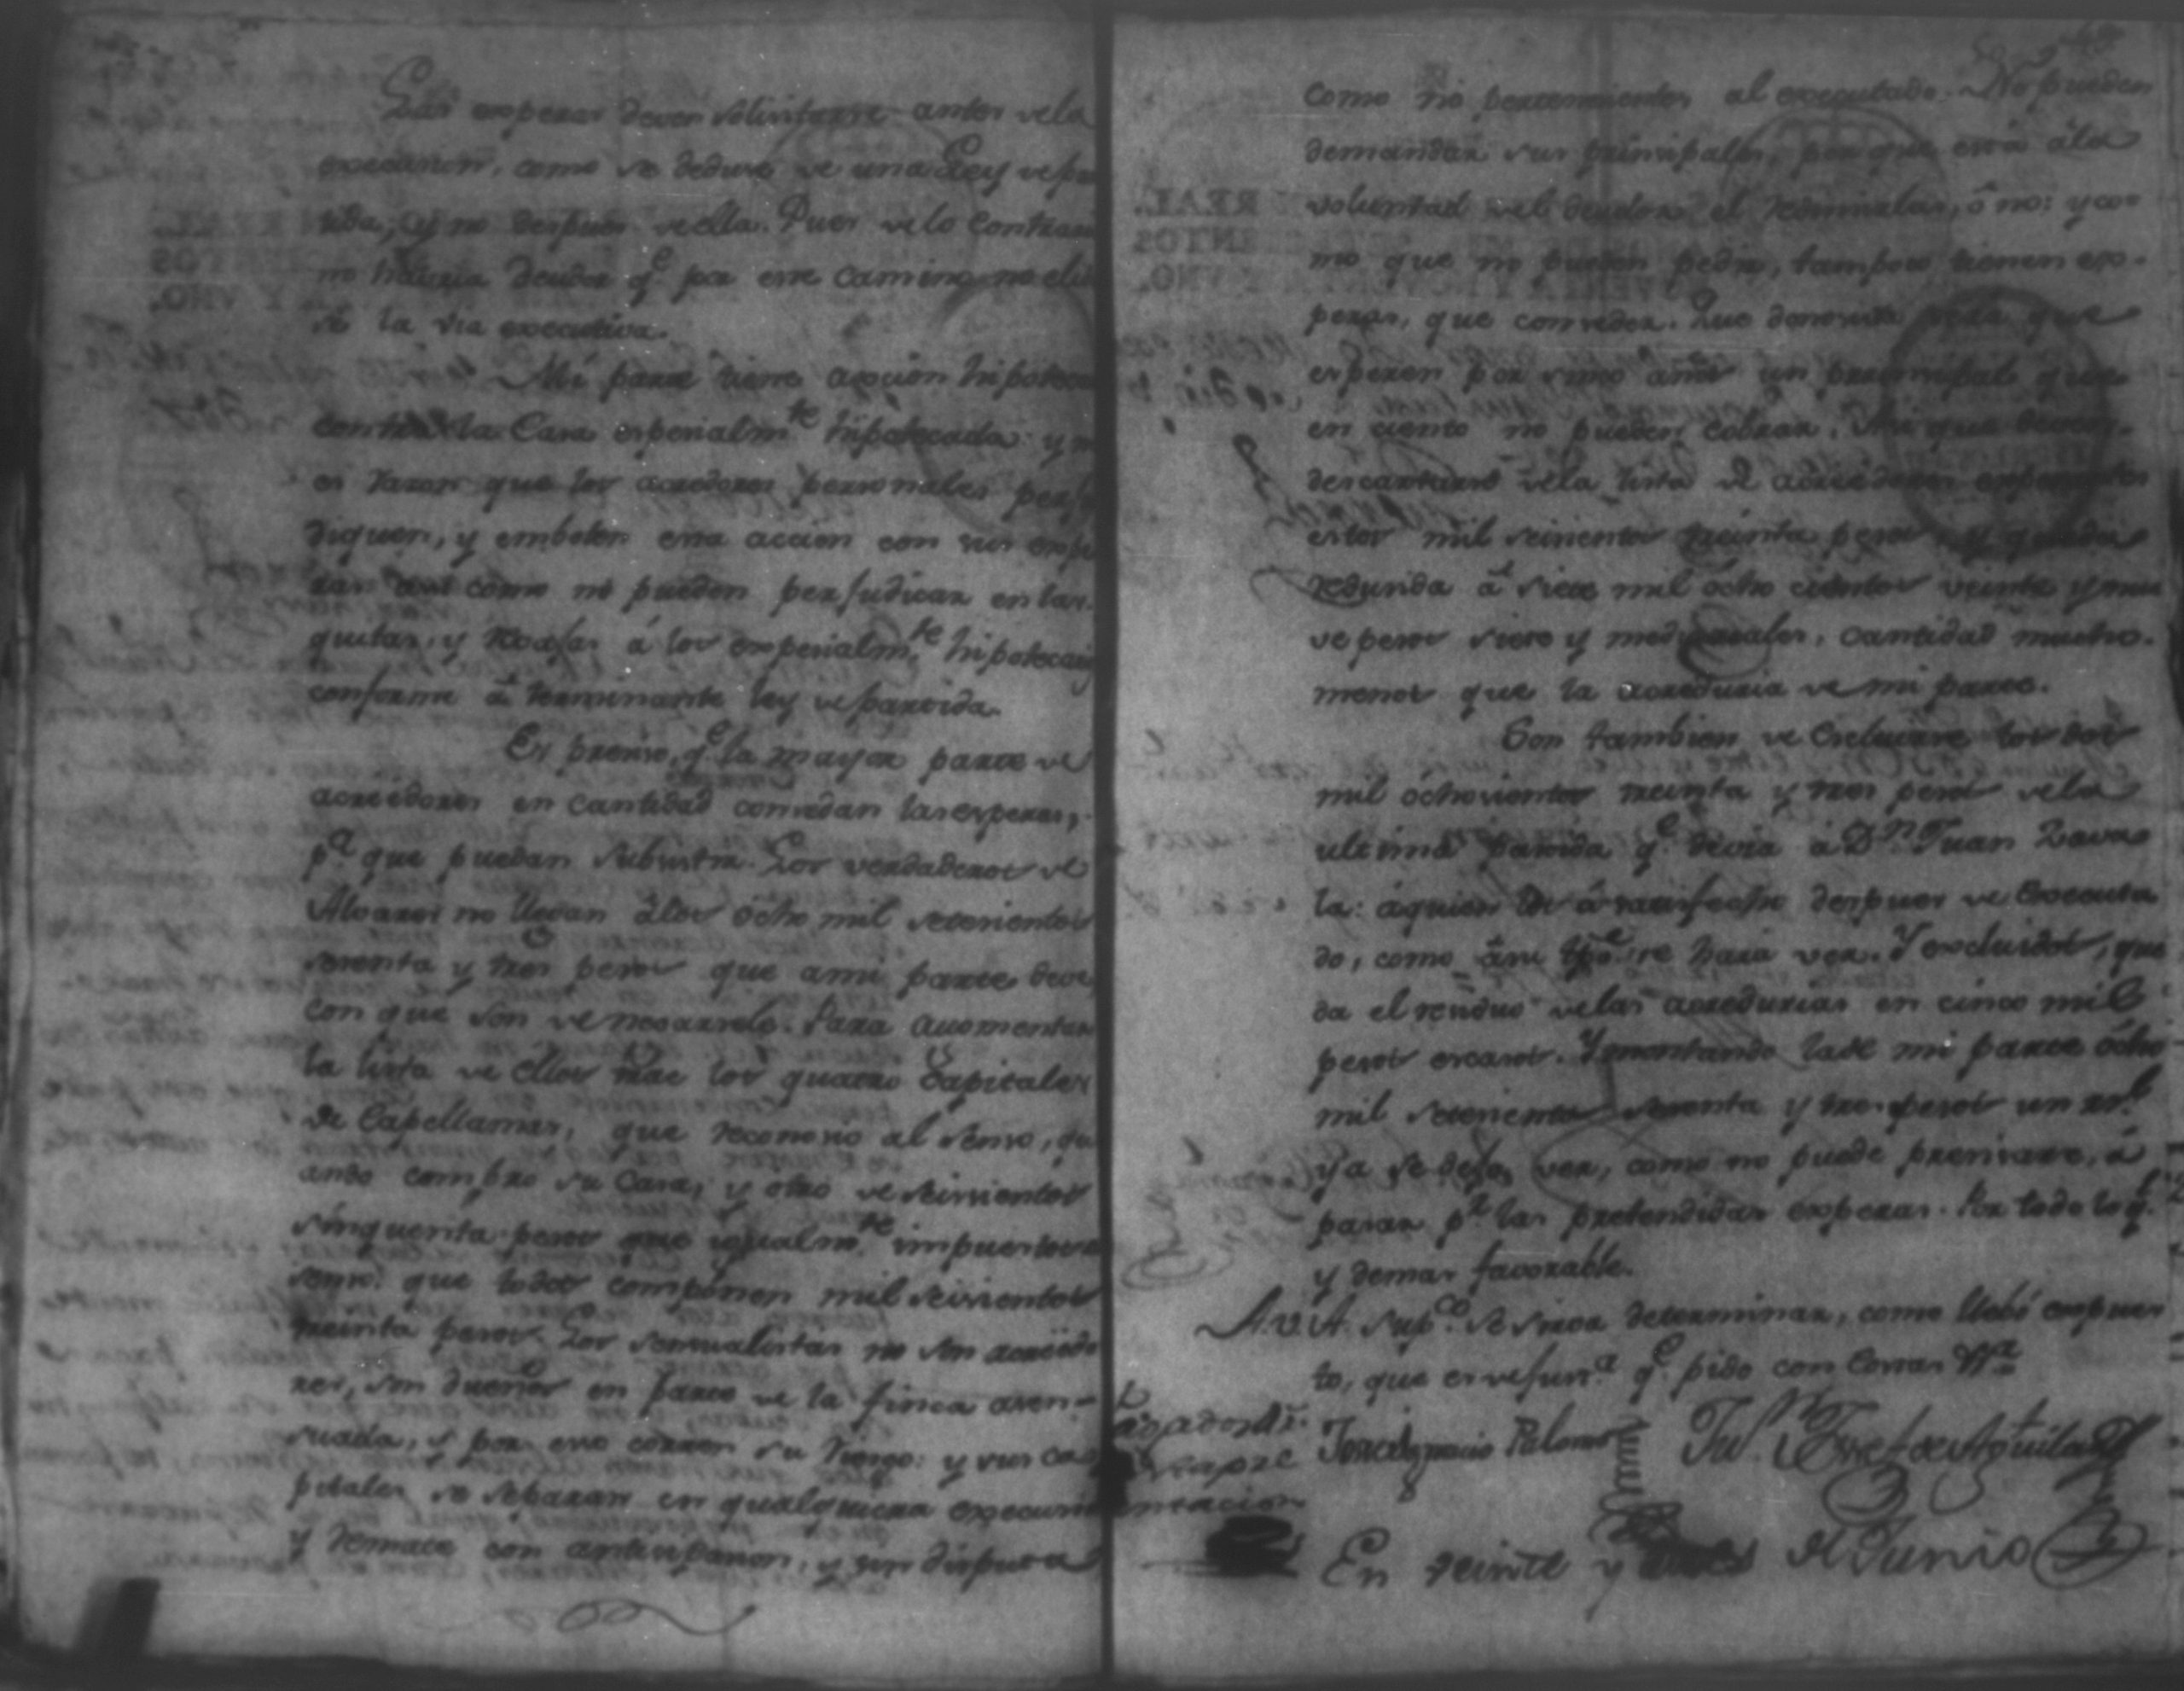 Las esperas deven solicitarse antes dela
execucion, como se deduce de una Ley de par
tida, y no despues de ella. Pues delo contrario
no havria deudor qe. por este camino no elu
sé la via executiva.
Mi parte tiene accion hipoteca
contra la Casa especialmte. hipotecada: y no
es razon que los acredores personales perju
diquen, y emboten esta accion con sus espe
ras asi como no pueden perjudicar en las
quitas, y á los especialmte. hipotecari
conforme á terminante ley de partida.
Es preciso, qe. la mayor parte de
acreédores en cantidad concedan las esperas,
pa. que puedan subsistir. Los verdaderos de
Alvarez no llegan álos ócho mil setecientos
y tres pesos que ami parte deve
con que son de necesarelo. Para aucmentar
la lista de éllos trae los quatro Capitales
de Capellanias, que reconocio al senso, qu
ando compró su Casa, y otro de seiscientos
sinquenta pesos que ygualmte. impuestos a
senso: que todos componen mil seiscientos
treinta pesos. Los sensualistas no son acreédo
res, son dueños en parte de la finca asen-
suada, y por eso corren su riesgo: y sus ca
pitales se separan en qualquiera execucion
y remate con anticipacion, y sin disputa
como no pertenecientes al executado. No pueden
demandar sus principales, por que está ála
voluntad del deudor el redimirlas, ó no: y co-
mo que no pueden pedir, tampoco tienen es-
peras, que conceder. Que donosura seria que
esperen por sinco años un principal que
en ciento no pueden cobrar. Asi que deven
descartarse dela lista de acreedores
estos mil seiscientos treinta pesos y queda
reducida á siete mil ócho cientos veinte y nue
ve pesos siete y medio reales, cantidad mucho
menor que la acreduria de mi parte.
Son tambien de Excluirse los dos
mil óchocientos treinta y tres pesos dela
ultima partida qe. devia á Dn. Juan Zava
la: áquien los á satisfecho despues de Executa
do, como ásu tpo. se hará ver. Y excluidos, que
da el residuo delas acredurias en cinco mil
pesos escasos. Y montando la de mi parte ócho
mil setecientos y tres pesos un rl.
ya se deja ver, como no puede precisarse, á
pasar pr. las pretendidas esperas. Por todo lo qe.
y demas favorable.
A.V.A. supco. se sirva determinar, como llebó expues
to, que es de justa. qe. pido con Costas Va.
Jose Ygnacio Palomo
En veinte y de Junio